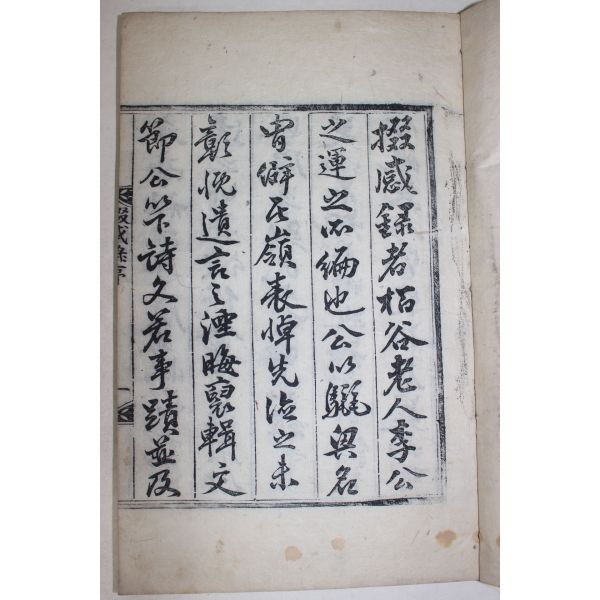 掇感録者栢谷老人李公
之運之所編也公以驪興名
胄僻在嶺表悼先德之未
彰慨遺言之湮晦裒輯文
節公下詩文若事蹟並及
掇感錄序
一